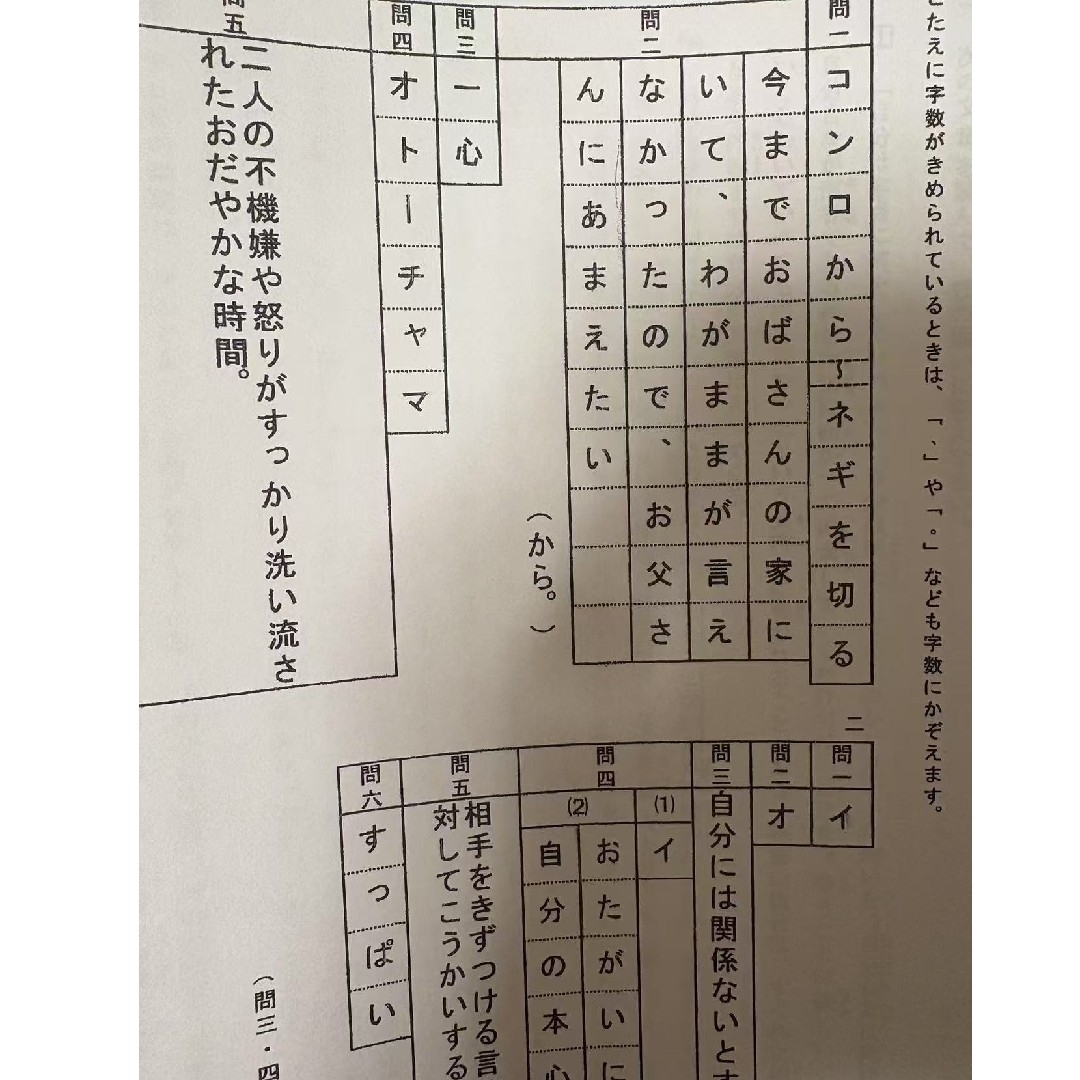 たえに字数がきめられているときは、「、」や「。」なども字数にかぞえます。
問一
コンロから~ネギを切る
問二
今までおばさんの家に
いて、わがままが言え
なかったので、お父さ
んにあまえたい
(から。)
問三
一心
問四
オトーチャマ
問五
二人の不機嫌や怒りがすっかり洗い流さ
れたおだやかな時間。
二
問一
イ
問二
オ
問三
自分には関係ないと
問四
(1)
イ
(2)
おたがいに
自分の本心
問五
相手をきずつける言
対してこうかいする
問六
すっぱい
(問三・四